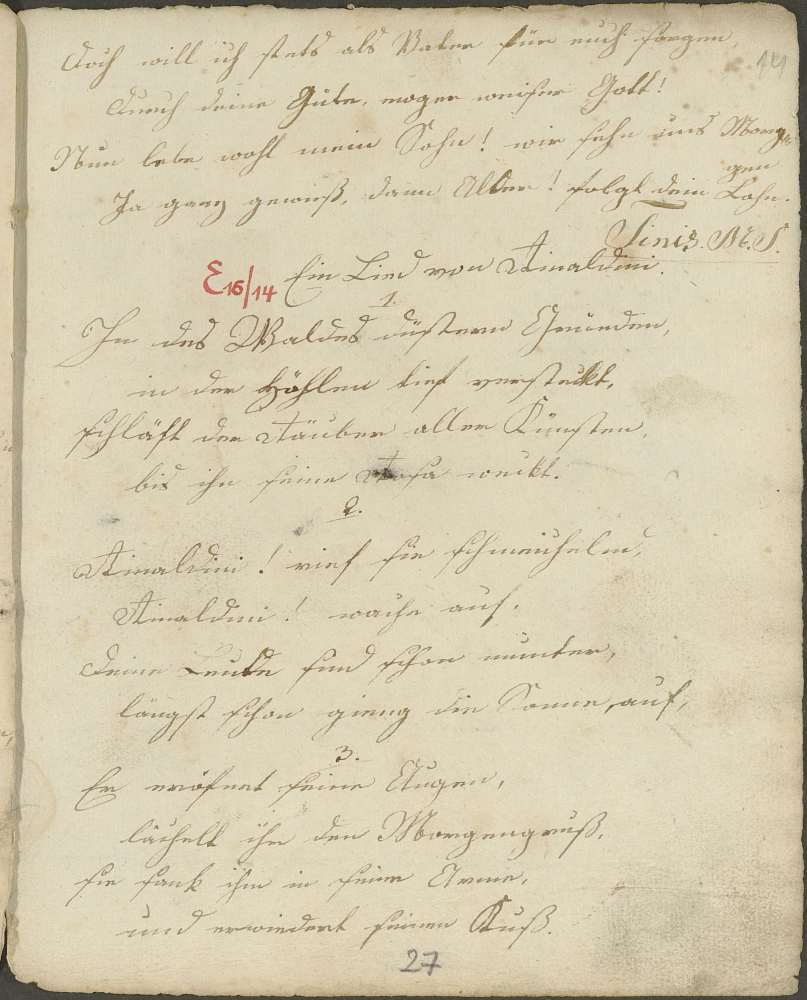 Doch will ich stets als Vater für euch sorgen,
14
durch deine Güte, weiser Gott!
Nun lebe wohl mein Sohn! wir sehn uns Morg„
gen
Ja ganz gewiß, dann Alter! folgt dein Lohn.
Finis. M. S.
E16/14 Ein Lied von Rinaldini.
1.
In des Waldes düstern Gründen,
in der Höhlen tief versteckt,
schläft der Räuber aller Künsten,
bis ihn seine Rosa weckt.
2.
Rinaldini! rief sie schmeichelnd,
Rinaldini! wache auf,
deine Leute sind schon munter,
längst schon gieng die Sonne auf,
3.
Er eröfnet seine Augen,
lächelt ihr den Morgengruß,
sie sank ihm in seine Arme,
und erwiedert seinen Kuß.
27